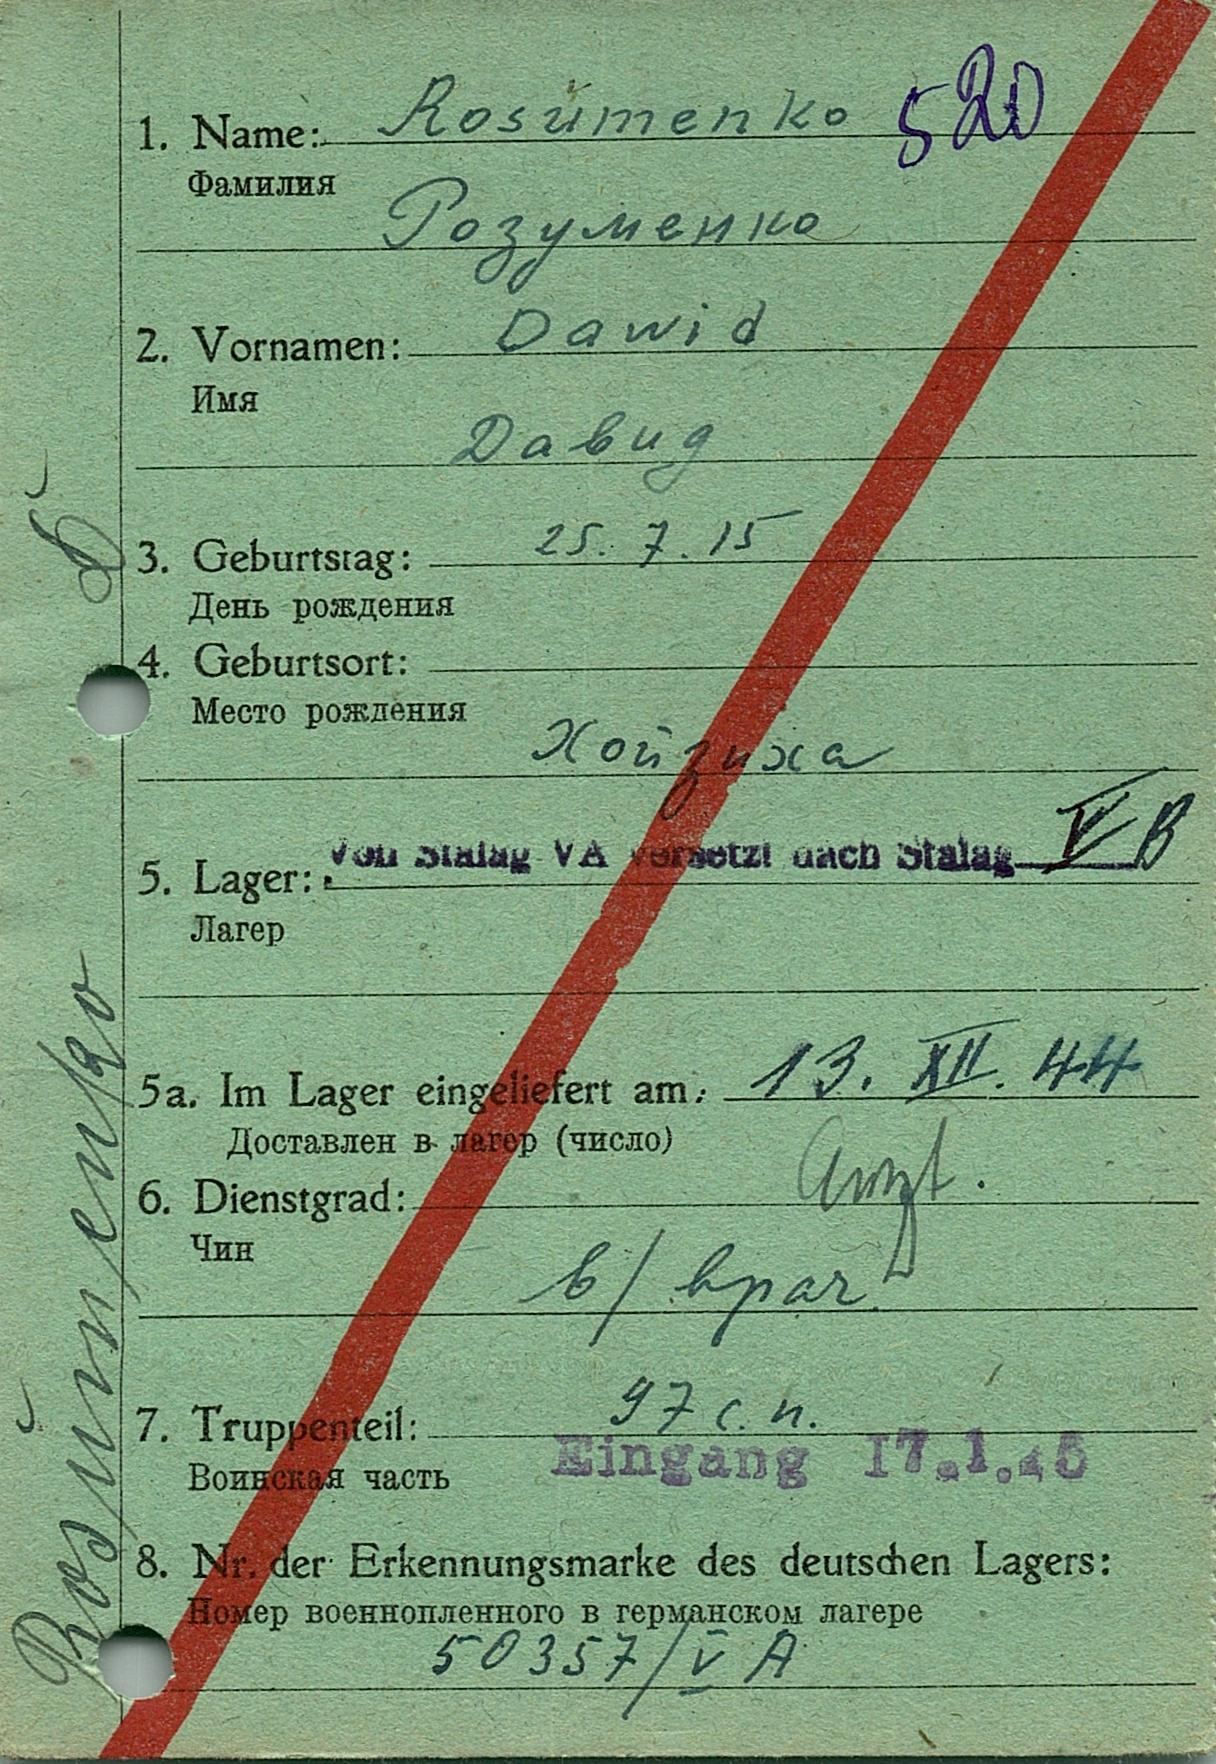 1. Name: Rosŭmenko 520
Фамилия
Розуменко
2. Vornamen: Dawid
Имя
Давид
3. Geburtstag: 25. 7. 15
День рождения
4. Geburtsort:
Место рождения
Хойзиха
Von Stalag VA versetzt nach Stalag V B
5. Lager:
Лагер
5a. Im Lager eingeliefert am: 13. XII. 44
Доставлен в лагер (число)
Arzt.
6. Dienstgrad:
Чин
в/врач
7. Truppenteil: 97 с. п.
Eingang 17.1.45
Воинская часть
8. Nr. der Erkennungsmarke des deutschen Lagers:
Номер военнопленного в германском лагере
50357/V A
Rosŭmenko